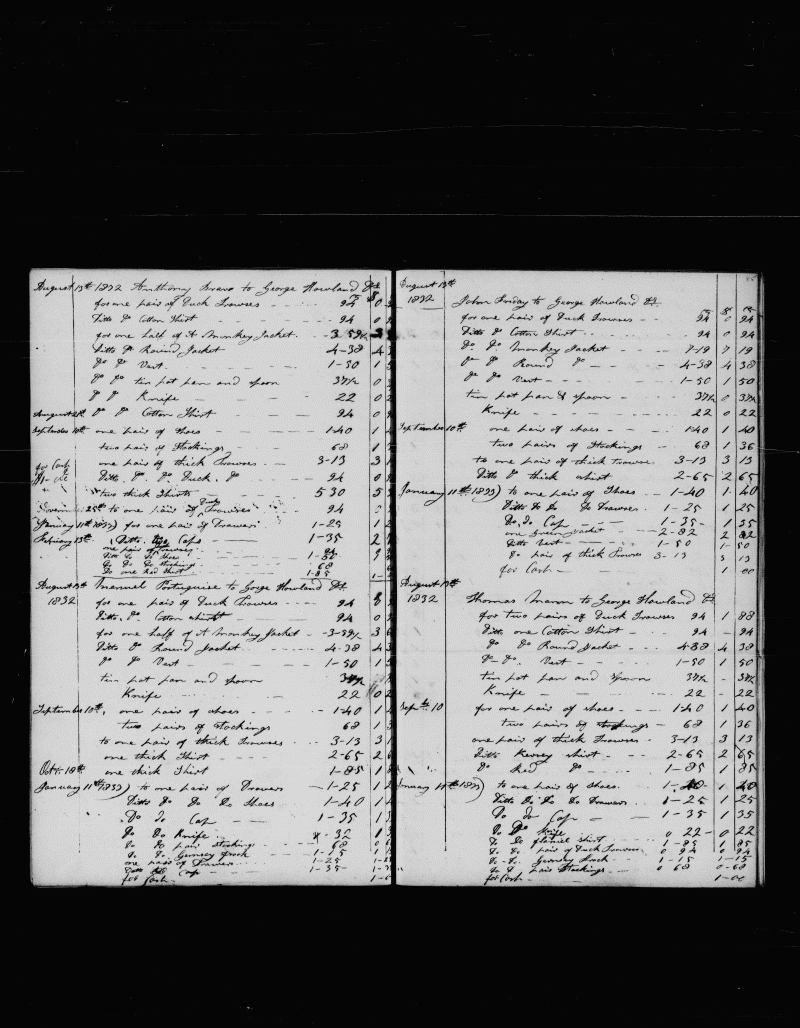 August 13th 1832 Anthony Bravo to George Howland Dr
for one pair of Duck Trowses - - 94 0
Ditto Do Cotton Shirt - - 94 0
for one half of A Monkey Jacket - 3 59½ 3
Ditto Do Round Jacket - 4-38 4
Do Do Vest - - 1-50 1
Do Do tin pot pan and spoon 37½ 0
Do Do Knife - - 22 0
August 21st Do Do Cotton Shirt - 94 0
September 10th one pair of shoes - 1-40 1
two pair of Stockings - 68 1
one pair of thick Trowses - 3-13 3
for Cash
Ditto Do Do Duck Do - 94 0
two thick Shirts - 5 30 5
November 25th to one pair of Duck Trowses 94
January 11th 1833) for one pair of Drawers 1-25 1
February 13th Ditto Cap - 1-35
one pair of Trowses - 94
Ditto Do Do Shoes
Do Do Do Stockings 68
Do one Red Shirt 1-85
August 13th Manuel Portuguise to George Howland Dr
1832
for one pair of Duck Trowses - 94
Ditto Do Cotton shirt - 94 0
for one half of A Monkey Jacket - 3-59½ 3
Ditto Do Round Jacket - 4-38 4
Do Do Vest - 1-50 1
tin pot pan and spoon 37½
Knife - 22 0
September 10th, one pair of shoes - 1-40 1
two pairs of stockings 68 1
to one pair of thick Trowses - 3-13 3
one thick Shirt - 2-65 2
Oct 18th one thick Shirt - 1-85 1
January 11th 1833) to one pair of Drawers - 1-25 1
Ditto Do Do Do Shoes 1-40 1
Do Do Cap - 1-35 1
Do Do Knife - 32
Do Do pair Stockings - 68
Do Do Gurnsey frock
one pair of Drawers - 1-25
Ditto Cap - 1-35
for Cash -
August 13th
1832 John Friday to George Howland Dr
for one pair of Duck Trowses - 94 0 94
Ditto Do Cotton Shirt - 94 0 94
Do Do Monkey Jacket - 7-19 7 19
Do Do Round Do - 4-38 4 38
Do Do Vest - 1-50 1 50
tin pot pan & spoon - 37½ 0 37½
Knife - 22 0 22
September 10th one pair of shoes - 1-40 1 40
two pairs of Stockings 68 1 36
to one pair of thick Trowses 3-13 3 13
Ditto Do thick shirt 2-65 2 65
January 11th 1833) to one pair of Shoes - 1-40 1 40
Ditto Do Do Do Drawers 1-25 1 25
Do. Do Cap - 1-35 1 35
one Green Jacket - 2-82 2 82
Ditto Vest - 1-50 1-50
Do pair of thick Trowses 3-13 3 13
for Cash - 1 00
August 13th
1832 Thomas Mann to George Howland Dr
for two pairs of Duck Trowses 94 1 88
Ditto one Cotton Shirt - 94 - 94
Do Do Round Jacket - 4-38 4 38
Do Do Vest - 1-50 1 50
tin pot pan and spoon 37½ - 37½
Knife - 22 - 22
Sept 10 for one pair of shoes - 1-40 1 40
two pairs of stockings - 68 1 36
one pair of thick Trowses - 3-13 3 13
Ditto Kersey shirt - 2-65 2 65
Do Red Do - 1-85 1 85
January 11th 1833) to one pair of Shoes 1-40 1 40
Ditto Do Do Do Drawers 1-25 1 25
Do Do Cap - 1-35 1 35
Do Do Knife 0 22 - 0 22
Do Do flannel Shirt - 1-85 1 85
Do Do pair of Duck Trowses 0 94 0 94
Do Do Gurnsey frock - 1-15 1-15
Do Do pair Stockings - 0 68 0-68
for Cash - 1-00